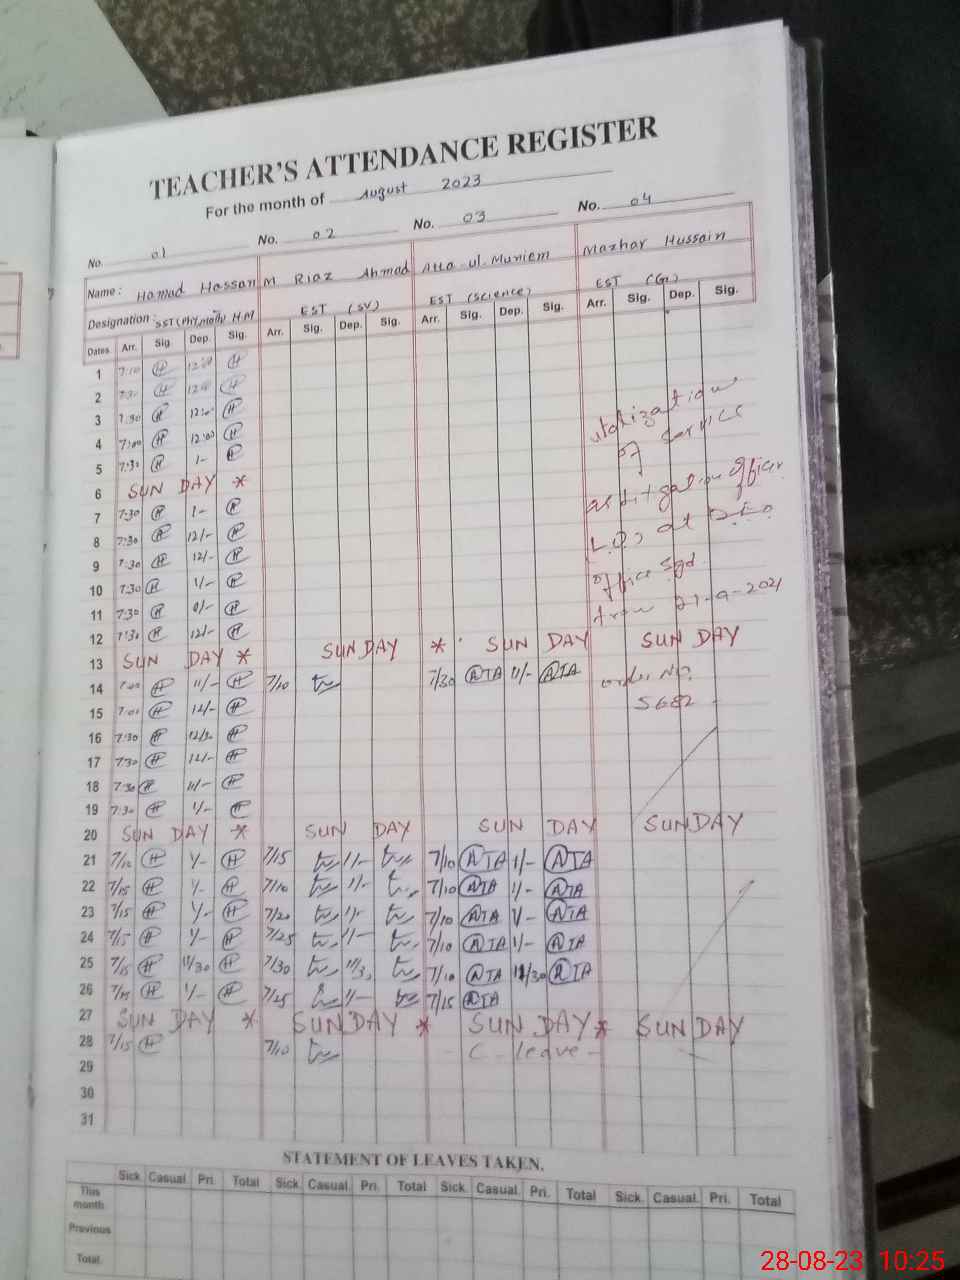 TEACHER'S ATTENDANCE REGISTER
For the month of August 2023
No. 01 No. 02 No. 03 No. 04
Name: Hamad Hassan M Riaz Ahmad Atta-ul-Muniem Mazhar Hussain
Designation: SST (Phy, Math) H.M EST (SV) EST (Science) EST (G)
Dates Arr. Sig. Dep. Sig. Arr. Sig. Dep. Sig. Arr. Sig. Dep. Sig. Arr. Sig. Dep. Sig.
1 7:10
2 7:30
3 7:30 12:00
4 7:00 12:00 utilization
5 7:30 1- of service
6 SUN DAY *
7 7:30 1- as Litigation officer
8 7:30 12/-
9 7:30 12/- L.O, at D.E.O
10 7:30 1/- office Sgd
11 7:30 from 21-9-2021
12 7:30 12/-
13 SUN DAY * SUN DAY * SUN DAY SUN DAY
14 7:00 11/- 7/10 7/30 ATA 11/- ATA order No.
15 7:00 12/- 5682
16 7:30 12/30
17 7:30 12/-
18 7:30 11/-
19 7:30 1/-
20 SUN DAY * SUN DAY SUN DAY SUNDAY
21 7/10 1/- 7/15 1/- 7/10 ATA 1/- ATA
22 7/15 1/- 7/10 1/- 7/10 ATA 1/- ATA
23 7/15 1/- 7/20 1/- 7/10 ATA 1/- ATA
24 7/15 1/- 7/25 1/- 7/10 ATA 1/- ATA
25 7/15 11/30 7/30 11/30 7/10 ATA 11/30 ATA
26 7/15 1/- 7/25 1/- 7/15 ATA
27 SUN DAY * SUNDAY * SUN DAY * SUN DAY
28 7/15 7/10 - C - leave -
29
30
31
STATEMENT OF LEAVES TAKEN.
Sick Casual Pri. Total Sick. Casual Pri. Total Sick. Casual. Pri. Total Sick. Casual. Pri. Total
This month
Previous
Total.
28-08-23 10:25